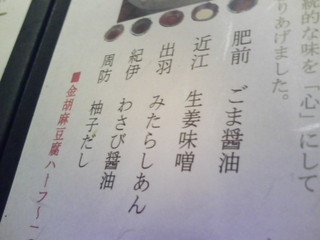 統的な味を「心」にして
りあげました。
肥前 ごま醤油
近江 生姜味噌
出羽 みたらしあん
紀伊 わさび醤油
周防 柚子だし
■金胡麻豆腐ハーフ〜